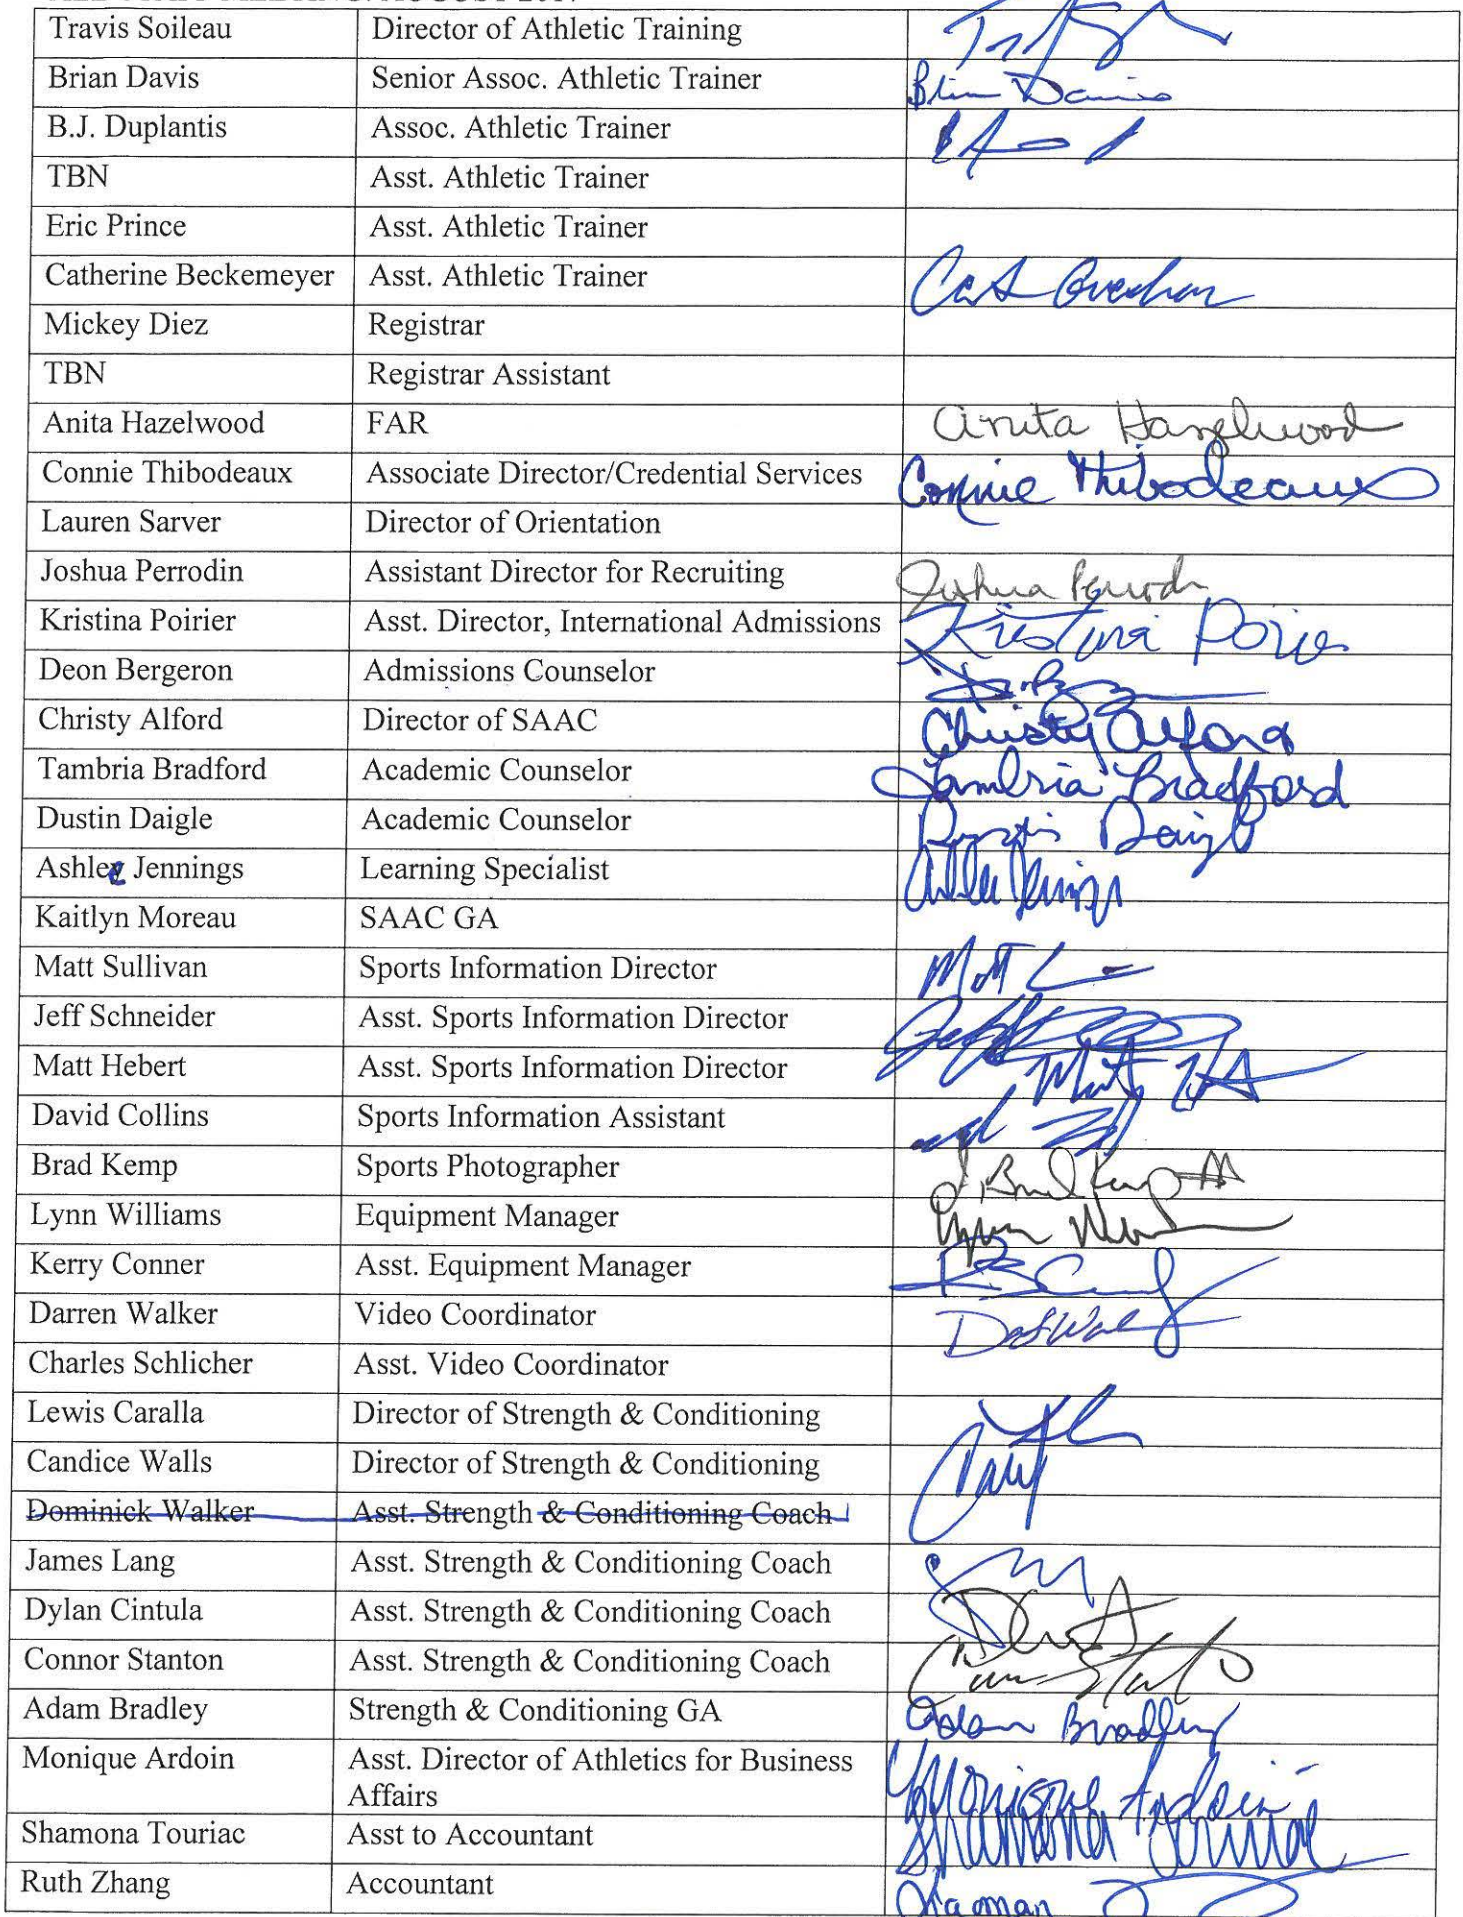 Travis Soileau Director of Athletic Training
Brian Davis Senior Assoc. Athletic Trainer Brian Davis
B.J. Duplantis Assoc. Athletic Trainer
TBN Asst. Athletic Trainer
Eric Prince Asst. Athletic Trainer
Catherine Beckemeyer Asst. Athletic Trainer
Mickey Diez Registrar
TBN Registrar Assistant
Anita Hazelwood FAR Anita Hazelwood
Connie Thibodeaux Associate Director/Credential Services Connie Thibodeaux
Lauren Sarver Director of Orientation
Joshua Perrodin Assistant Director for Recruiting Joshua Perrodin
Kristina Poirier Asst. Director, International Admissions Kristina Poirier
Deon Bergeron Admissions Counselor
Christy Alford Director of SAAC Christy Alford
Tambria Bradford Academic Counselor Tambria Bradford
Dustin Daigle Academic Counselor Dustin Daigle
Ashlee Jennings Learning Specialist
Kaitlyn Moreau SAAC GA
Matt Sullivan Sports Information Director Matt
Jeff Schneider Asst. Sports Information Director Jeff
Matt Hebert Asst. Sports Information Director Matt
David Collins Sports Information Assistant
Brad Kemp Sports Photographer J. Brad Kemp
Lynn Williams Equipment Manager Lynn
Kerry Conner Asst. Equipment Manager
Darren Walker Video Coordinator
Charles Schlicher Asst. Video Coordinator
Lewis Caralla Director of Strength & Conditioning
Candice Walls Director of Strength & Conditioning
Dominick Walker Asst. Strength & Conditioning Coach
James Lang Asst. Strength & Conditioning Coach
Dylan Cintula Asst. Strength & Conditioning Coach
Connor Stanton Asst. Strength & Conditioning Coach
Adam Bradley Strength & Conditioning GA Adam Bradley
Monique Ardoin Asst. Director of Athletics for Business Monique Ardoin
Affairs
Shamona Touriac Asst to Accountant Shamona Touriac
Ruth Zhang Accountant